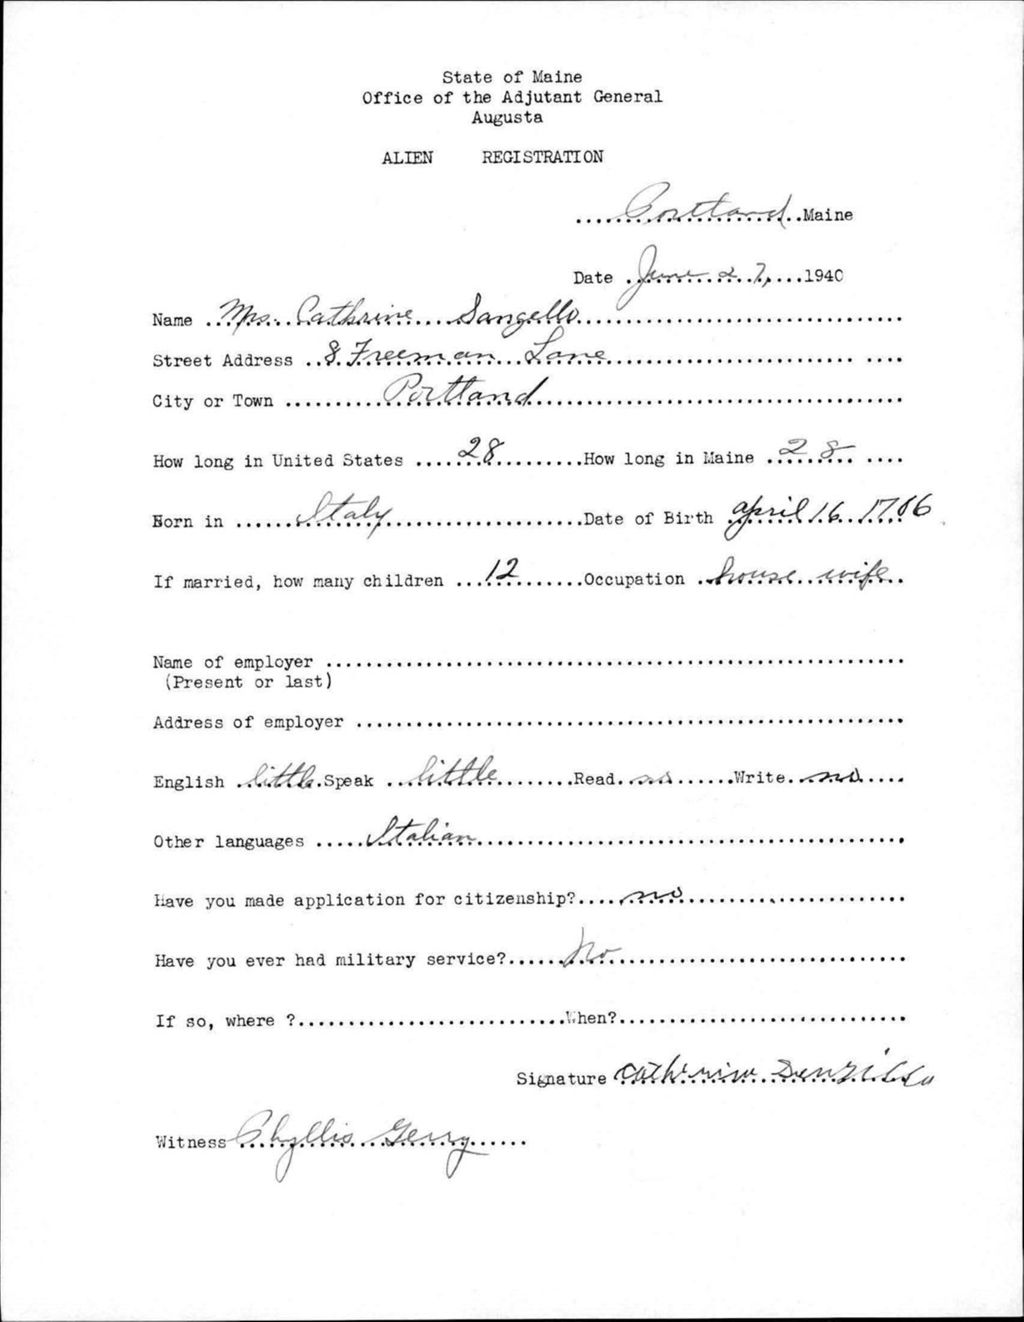 State of Maine
Office of the Adjutant General
Augusta
ALIEN REGISTRATION
....Portland..Maine
Date .June 27,...1940
Name ..Mrs. Cathrine Sangello................................
Street Address ..8 Freeman Lane.............................. ....
City or Town ..........Portland.....................................
How long in United States ....28.........How long in Maine .28.. ....
Born in ......Italy....................Date of Birth .April 16 1786
If married, how many children ...12.......Occupation ..house wife..
Name of employer ..........................................................
(Present or last)
Address of employer .......................................................
English .little.Speak ..little.......Read..no......Write..no....
Other languages .....Italian...........................................
Have you made application for citizenship?....no......................
Have you ever had military service?......No..............................
If so, where ?...........................When?.............................
Signature
Witness Phyllis Gerry......